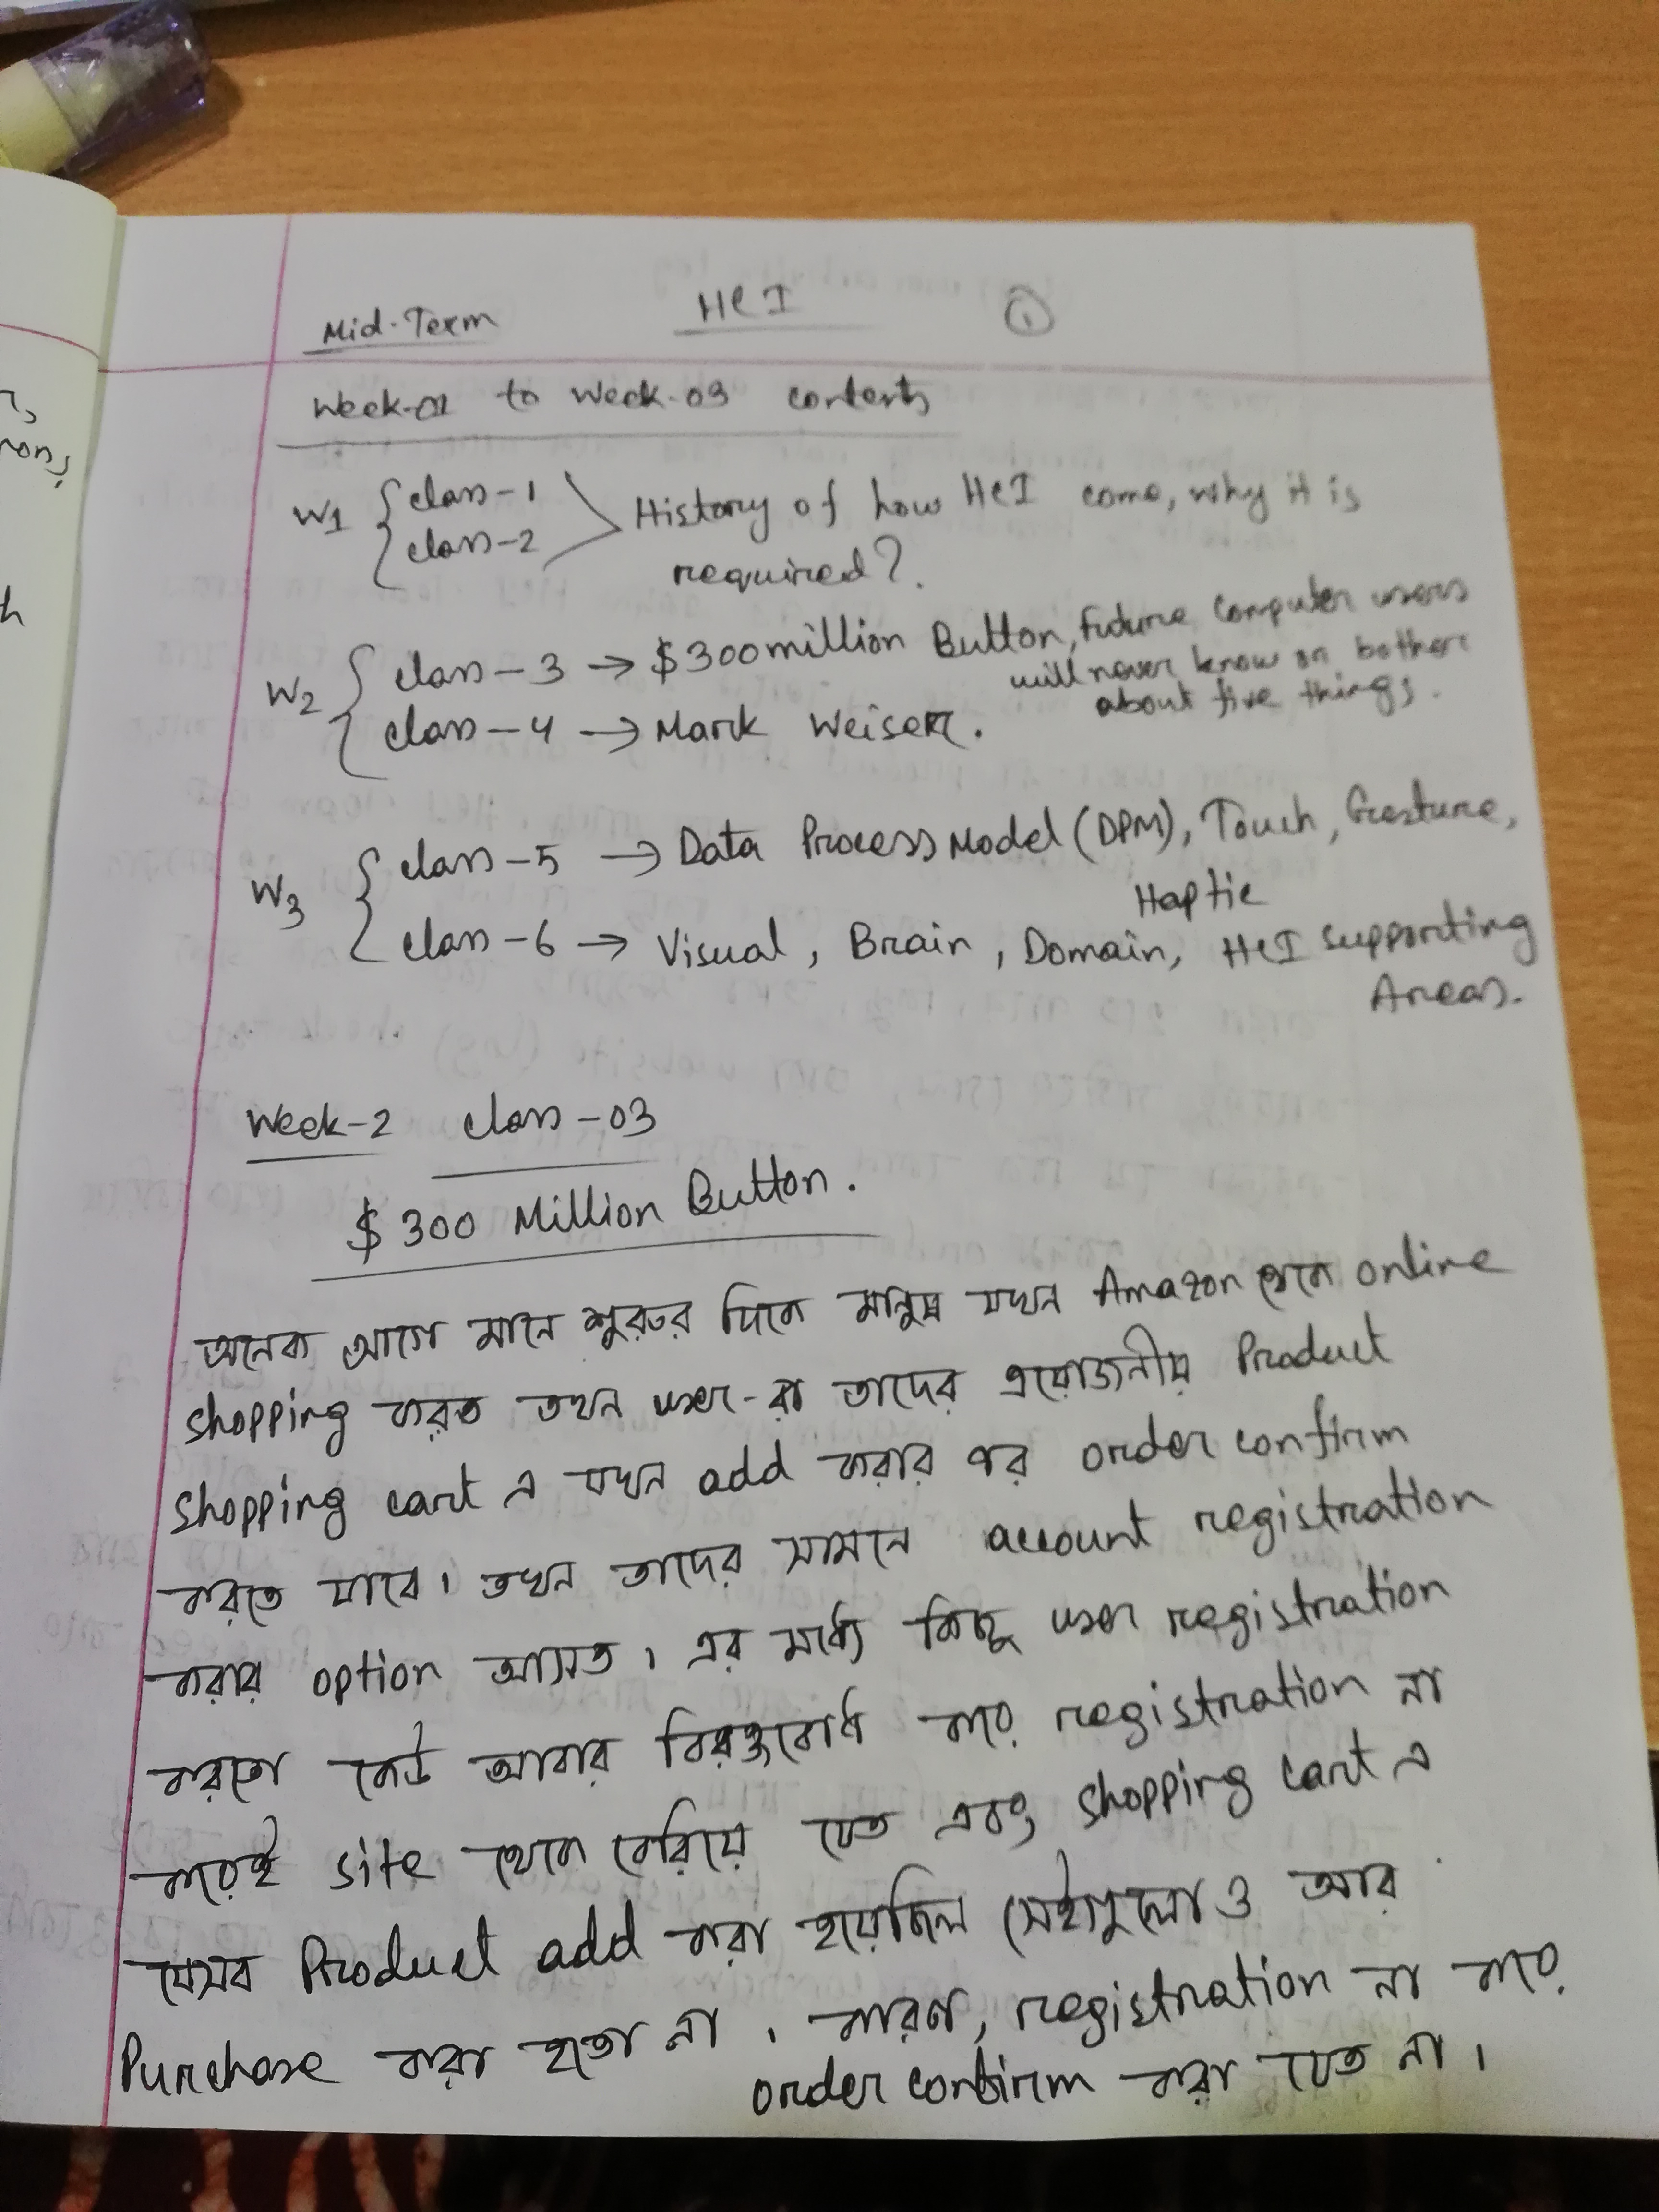 Mid-Term HCI 1
Week-01 to Week-03 contents
W1 { class-1
class-2 > History of how HCI come, why it is
required?
W2 { class-3 → $300 million Button, Future Computer users
will never know or bother
about five things.
class-4 → Mark Weiser.
W3 { class-5 → Data Process Model (DPM), Touch, Gesture,
Haptic
class-6 → Visual, Brain, Domain, HCI supporting
Areas.
Week-2 class-03
$300 Million Button.
অনেক আগে মানে শুরুর দিকে মানুষ যখন Amazon থেকে online
shopping করত তখন user-রা তাদের প্রয়োজনীয় Product
shopping cart এ যখন add করার পর order confirm
করতে যাবে। তখন তাদের সামনে account registration
করার option আসত। এর মধ্যে কিছু user registration
করতো কেউ আবার বিরক্তবোধ করে registration না
করেই site থেকে বেরিয়ে যেত এবং shopping cart এ
যেসব Product add করা হয়েছিল সেইগুলো ও আর
Purchase করা হতো না। কারণ, registration না করে
order confirm করা যেত না।